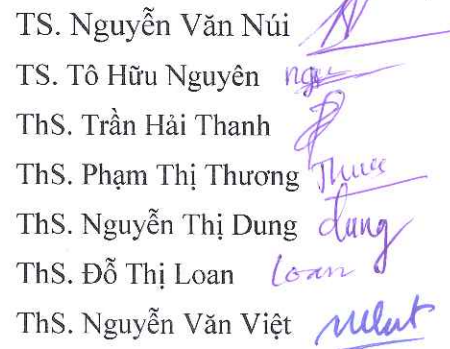 TS. Nguyễn Văn Núi
TS. Tô Hữu Nguyên
ThS. Trần Hải Thanh
ThS. Phạm Thị Thương Thươ
ThS. Nguyễn Thị Dung dung
ThS. Đỗ Thị Loan Loan
ThS. Nguyễn Văn Việt